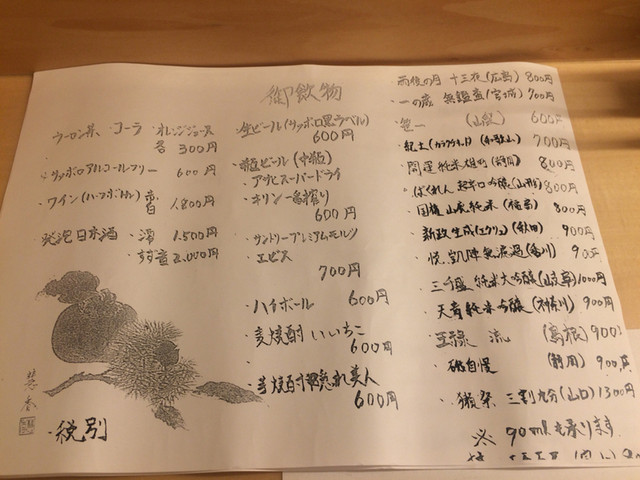 御飲物
・ウーロン茶、・コーラ ・オレンジジュース
各 300円
・サッポロアルコールフリー 600円
・ワイン(ハーフボトル) 赤 白 1,800円
発泡日本酒 ・澪 1,500円
2,000円
・税別
・生ビール(サッポロ黒ラベル)
600円
・瓶ビール(中瓶)
・アサヒスーパードライ
・キリン一番搾り
600円
・サントリープレミアムモルツ
・エビス
700円
・ハイボール 600円
・麦焼酎 いいちこ
600円
・芋焼酎 美人
600円
雨後の月 十三夜(広島) 800円
・一の蔵 無鑑査(宮城) 700円
・笹一 (山梨) 600円
・紀土(カラクチキッド)(和歌山) 700円
・開運 純米 (静岡) 800円
・ばくれん 超辛口吟醸(山形) 800円
・国権 山廃純米(福島) 800円
・新政 生成(エクリュ)(秋田) 900円
・悦凱陣 無濾過(香川) 900円
・三千盛 純米大吟醸(岐阜) 1000円
・天青 純米吟醸(神奈川) 900円
・王祿 (島根) 900円
・磯自慢 (静岡) 900円
・獺祭 三割九分(山口) 1300円
※ 90mlも承ります